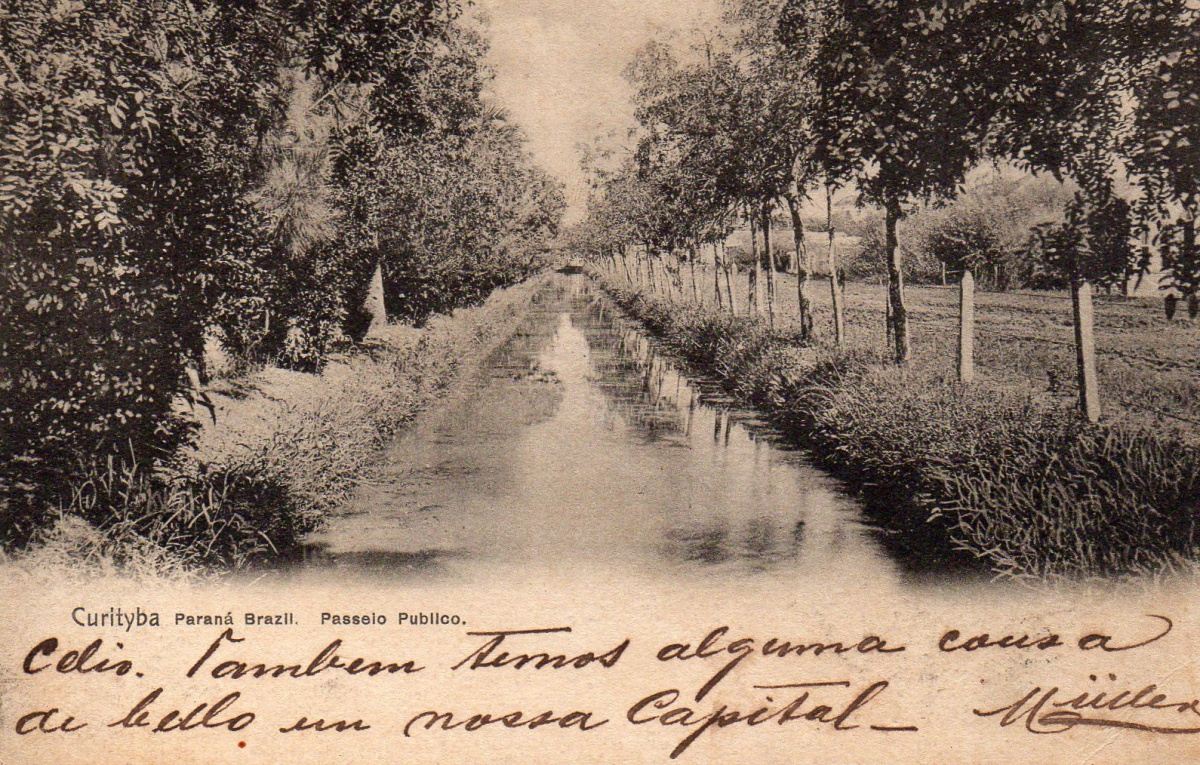 Curityba Paraná Brazil. Passeio Publico.
Celio. Tambem temos alguma cousa
de bello en nossa Capital – Müller